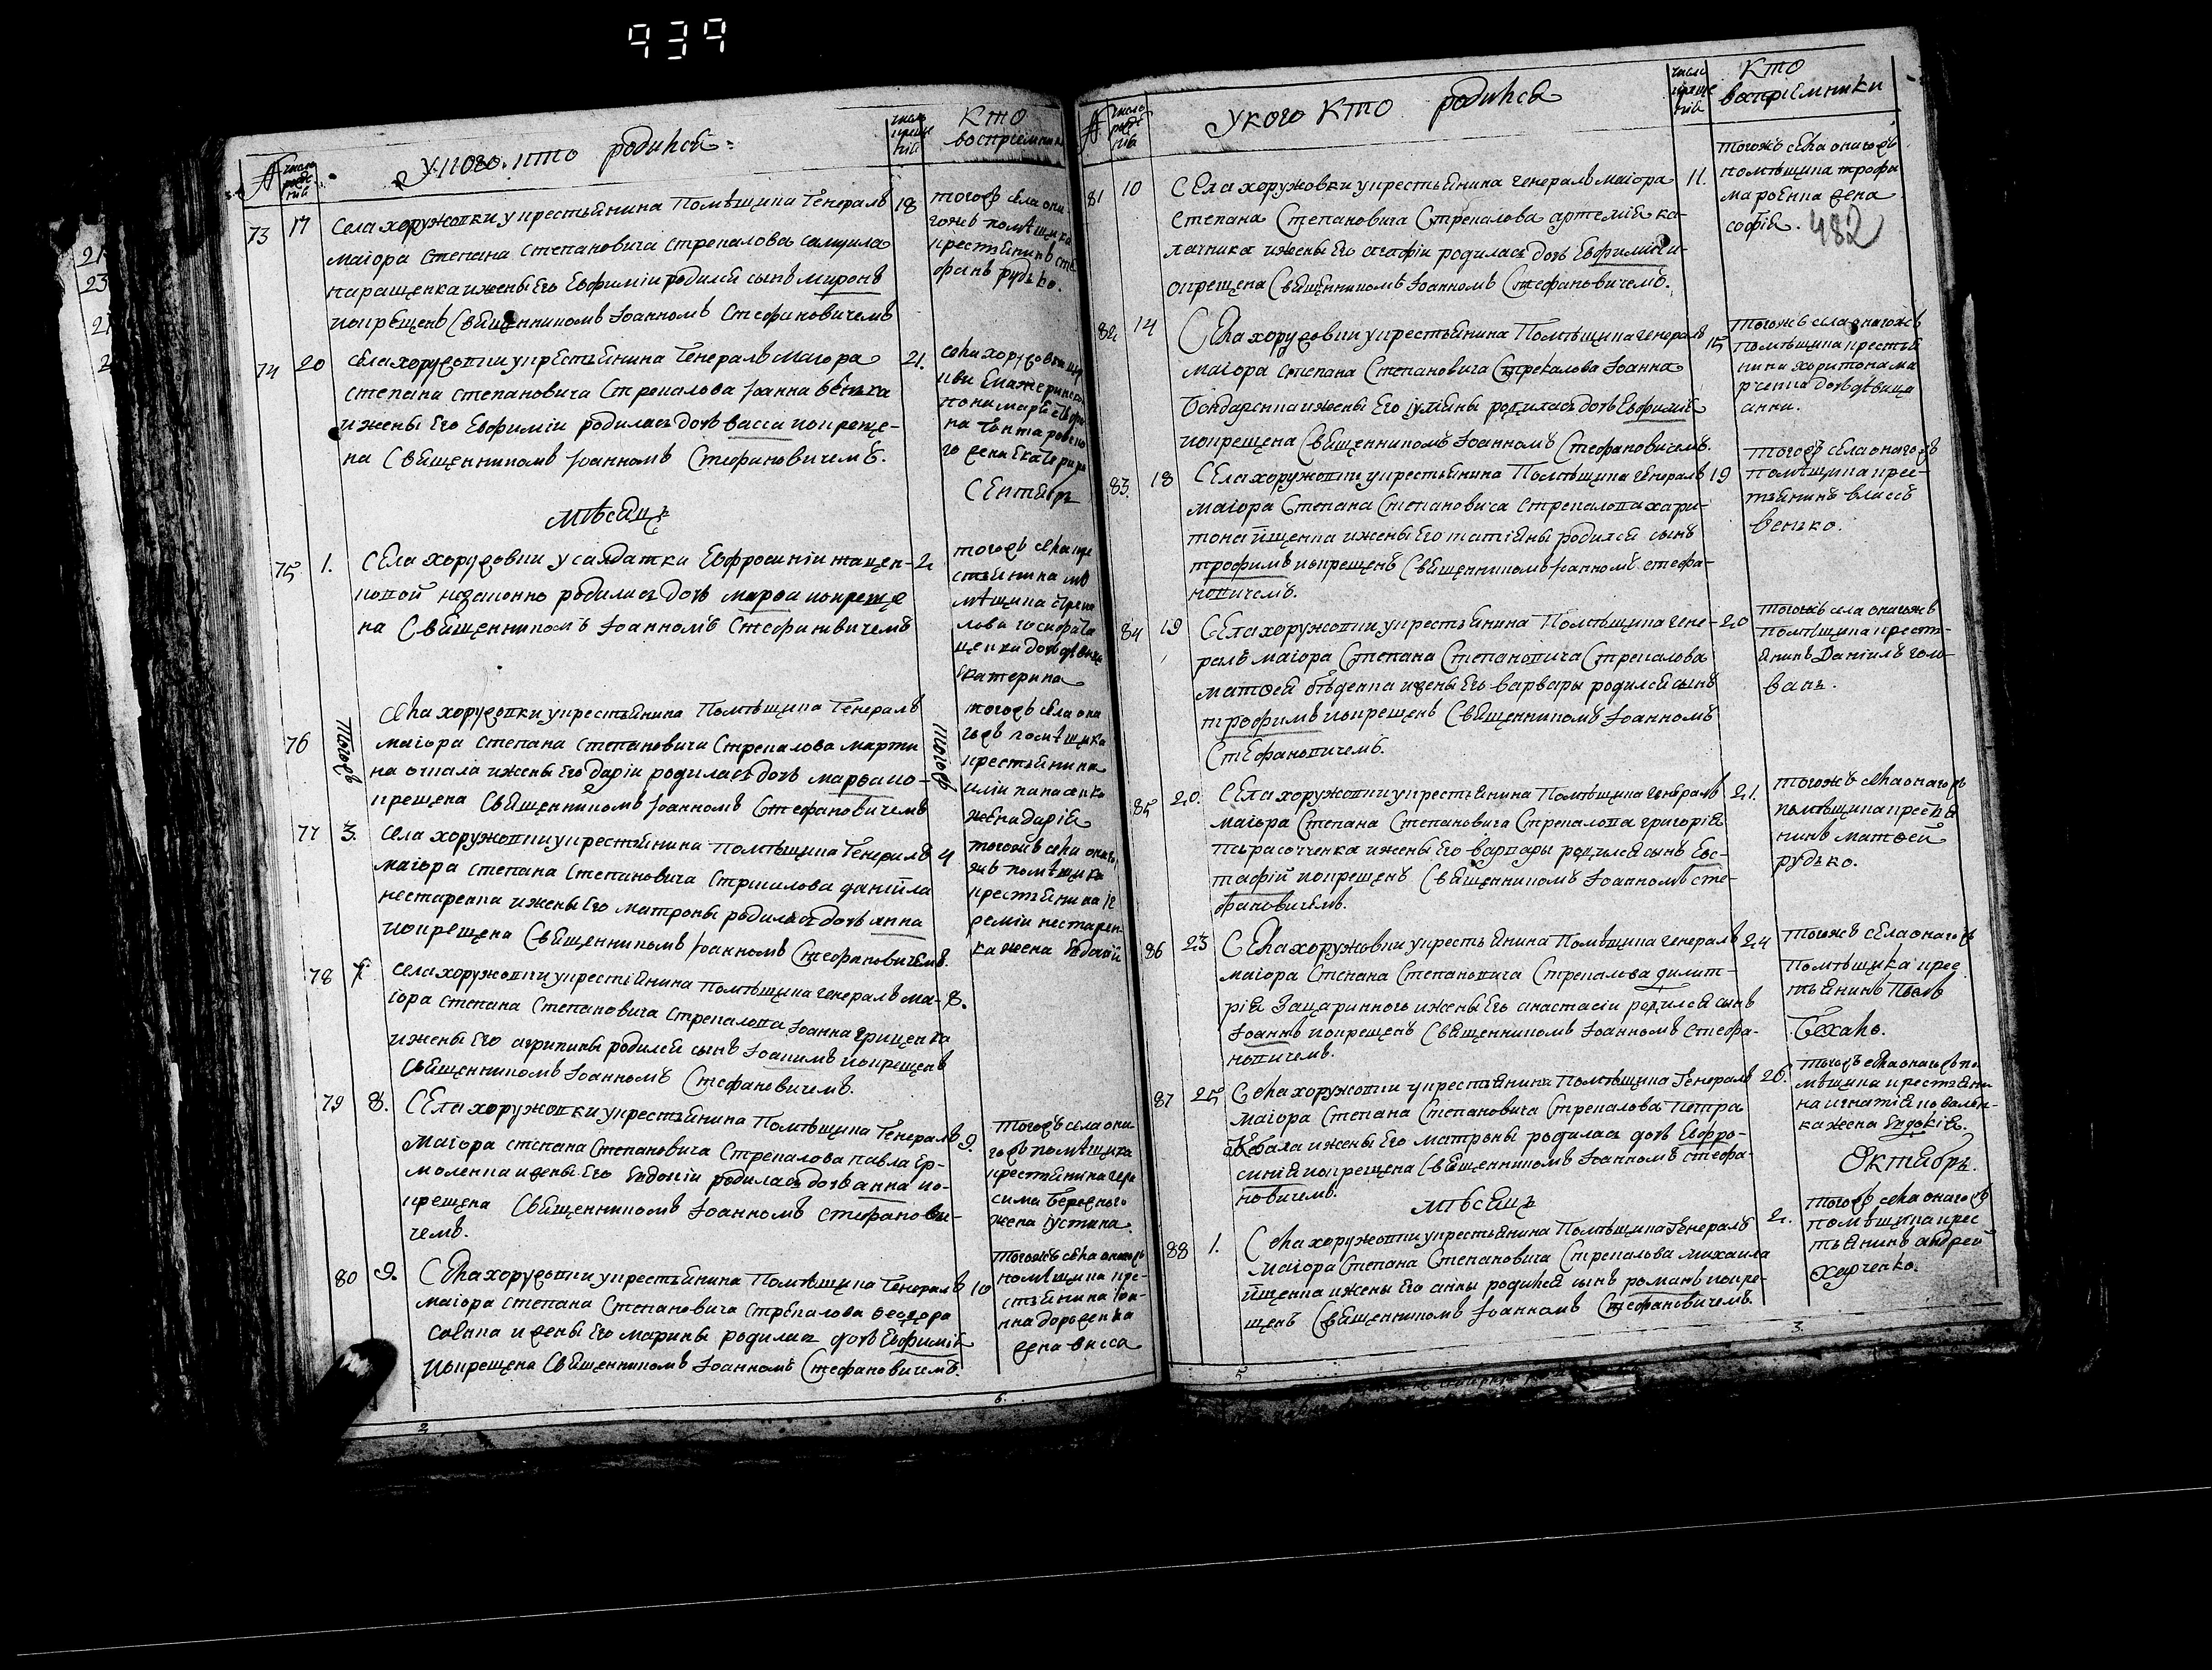 939
№
число рожденій
У кого кто родился
число крещеній
Кто воспріемники
73
17
Села хоружовки у крестьянина Помѣщика Генералъ
маіора Степана Степановича Стрекалова самуила
паращенка и жены Его Евфиміи родился сынъ миронъ
и окрещенъ Священникомъ Іоанномъ Стефановичемъ
18
тогожъ села она-
гожъ помѣщика
крестьянинъ сте-
фанъ рудько.
74
20
Села хоружовки у крестьянина Генералъ Маіора
степана степановича Стрекалова Іоанна венька
и жены Его Евфиміи родилась дочь васса и окреще-
на Священникомъ Іоанномъ Стефановичемъ.
21.
села хоружовки
жена Екатерина
мѣсяцъ
Сентябрь
75
1.
Села хоружовки у салдатки Евфросиніи
незаконно родилась дочь марѳа и окреще
на Священникомъ Іоанномъ Стефановичемъ
2
тогожъ села кре
стьянина по
мѣщика стрека
лова
щенка дочь дѣвица
Екатерина
76
тогожъ
Села хоружовки у крестьянина Помѣщика Генералъ
маіора степана степановича Стрекалова марти
на очкала и жены Его даріи родилась дочь марѳа и о-
крещена Священникомъ Іоанномъ Стефановичемъ
тогожъ
тогожъ села она
гожъ помѣщика
крестьянина
иліи панасенка
жена дарія
77
3.
Села хоружовки у крестьянина Помѣщика Генералъ
маіора степана Степановича Стрекалова даніила
нестаренка и жены Его матроны родилась дочь анна
и окрещена Священникомъ Іоанномъ Стефановичемъ.
4
тогожъ села онаго
жъ помѣщика
крестьянина Іе
реміи нестарен
ка жена Евдокія
78
7
Села хоружовки у крестьянина Помѣщика генералъ ма-
іора степана Степановича Стрекалова Іоанна грищенка
и жены Его агрипины родился сынъ Іоакимъ и окрещенъ
Священникомъ Іоанномъ Стефановичемъ.
8.
79
8.
Села хоружовки у крестьянина Помѣщика Генералъ
Маіора степана Степановича Стрекалова павла Ер-
моленка и жены Его Евдокіи родилась дочь анна и о-
крещена Священникомъ Іоанномъ Стефанови-
чемъ.
9.
тогожъ села она-
гожъ помѣщика
крестьянина гера
сима бережного
жена іустина
80
9.
Села хоружовки у крестьянина Помѣщика Генералъ
маіора степана Степановича Стрекалова ѳеодора
саенка и жены Его марины родилась дочь Евфимія
и окрещена Священникомъ Іоанномъ Стефановичемъ.
10
тогожъ села онагожъ
помѣщика кре-
стьянина Іоа-
нна дорошенка
жена васса
№
число рожденій
У кого кто родился
число крещеній
Кто воспріемники
482
81
10
Села хоружовки у крестьянина генералъ маіора
степана Степановича Стрекалова артемія ка-
лачника и жены Его агафіи родилась дочь Евфимія и
окрещена Священникомъ Іоанномъ Стефановичемъ.
11.
тогожъ села онагожъ
помѣщика трофи
ма роенка жена
софія.
82
14
Села хоружовки у крестьянина Помѣщика генералъ
маіора степана Степановича Стрекалова Іоанна
бондаренка и жены Его іуліяны родилась дочь Евфимія
и окрещена Священникомъ Іоанномъ Стефановичемъ.
15
тогожъ села онагожъ
помѣщика крестья
нина харитона ма
рченка дочь дѣвица
анна.
83.
18
Села хоружовки у крестьянина Помѣщика генералъ
маіора Степана Степановича стрекалова хари-
тона йщенка и жены Его татіяны родился сынъ
трофимъ и окрещенъ Священникомъ Іоанномъ стефа-
новичемъ.
19
тогожъ села онагожъ
помѣщика крес-
тьянинъ власъ
венько.
84
19
Села хоружовки у крестьянина Помѣщика гене-
ралъ маіора Степана Степановича Стрекалова
матѳея бѣденка и жены Его варвары родился сынъ
трофимъ и окрещенъ Священникомъ Іоанномъ
Стефановичемъ.
20
тогожъ села онагожъ
помѣщика кресть-
янинъ Даніилъ голо-
вань.
85
20.
Села хоружовки у крестьянина Помѣщика генералъ
маіора Степана Степановича Стрекалова григорія
тарасюченка и жены Его варвары родился сынъ Евс-
тафій и окрещенъ Священникомъ Іоанномъ сте-
фановичемъ.
21.
тогожъ села онагожъ
помѣщика крестья
нинъ матѳей
рудько.
86
23
Села хоружовки у крестьянина Помѣщика генералъ
маіора Степана Степановича Стрекалова димит-
рія Зацаринного и жены Его анастасіи родился сынъ
Іоаннъ и окрещенъ Священникомъ Іоанномъ стефа-
новичемъ.
24
тогожъ села онагожъ
Помѣщика крес
тьянинъ
87
25
Села хоружовки у крестьянина Помѣщика Генералъ
маіора Степана Степановича Стрекалова Петра
Кебала и жены Его матроны родилась дочь Евфро-
синія и окрещена Священникомъ Іоанномъ стефа-
новичемъ.
26.
тогожъ села онагожъ по-
мѣщика крестьяни
на игнатія ковален-
ка жена Евдокія.
мѣсяцъ
Октябрь.
88
1.
Села хоружовки у крестьянина Помѣщика Генералъ
маіора Степана Степановича Стрекалова михаила
йщенка и жены Его анны родился сынъ романъ и окре-
щенъ Священникомъ Іоанномъ Стефановичемъ.
2.
тогожъ села онагожъ
помѣщика крес
тьянинъ андрей
харченко.